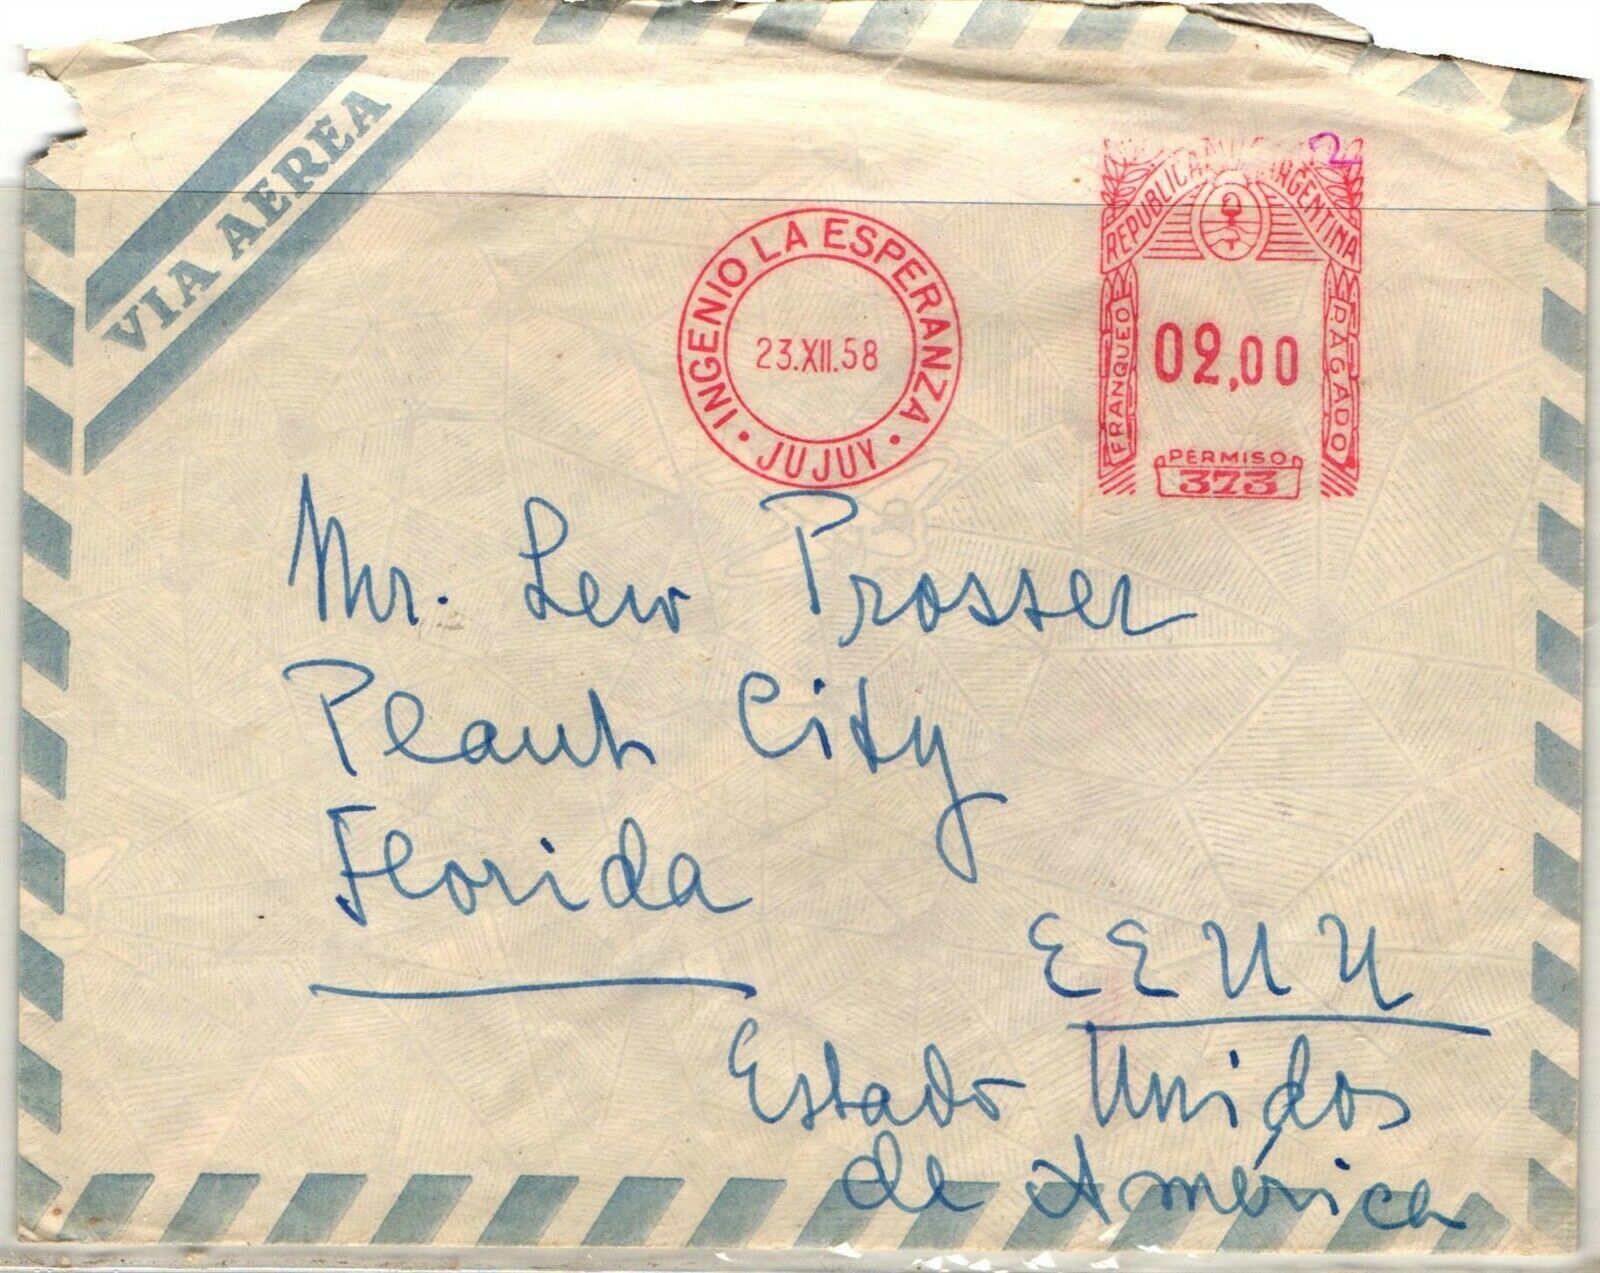 VIA AEREA
INGENIO LA ESPERANZA
JUJUY
23.XII.58
REPUBLICA ARGENTINA
FRANQUEO
PAGADO
02,00
PERMISO
373
2
Mr. Lew Prosser
Plant City
Florida
EEUU
Estado Unidos
de América